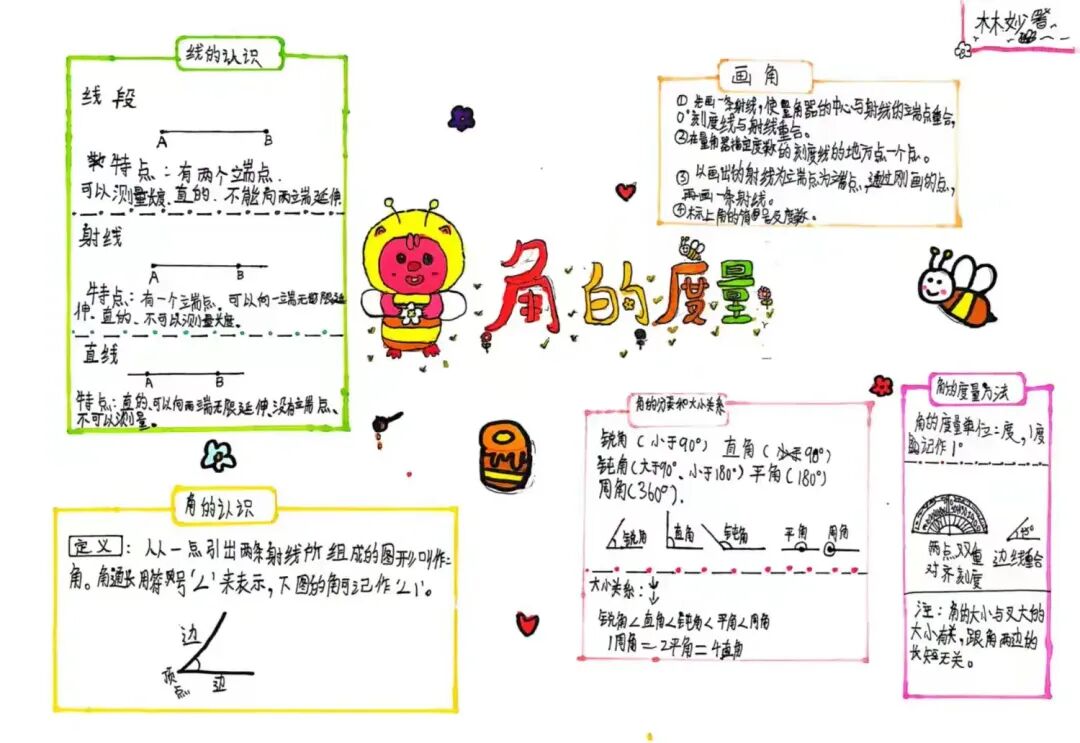 林妙署
线的认识
线段
A B
特点：有两个端点.
可以测量长度、直的、不能向两端延伸
射线
A B
特点：有一个端点、可以向一端无限延
伸、直的、不可以测量长度。
直线
A B
特点：直的、可以向两端无限延伸、没有端点、
不可以测量。
角的认识
定义：从一点引出两条射线所组成的图形叫作
角。角通常用符号“∠”来表示，下图的角可记作“∠1”。
边
顶点 边
角的度量
画角
①先画一条射线，使量角器的中心与射线的端点重合，
0°刻度线与射线重合。
②在量角器指定度数的刻度线的地方点一个点。
③以画出的射线为端点为端点，通过刚画的点，
再画一条射线。
④标上角的符号及度数。
角的分类和大小关系
锐角（小于90°） 直角（90°）
钝角(大于90°、小于180°) 平角（180°）
周角(360°).
锐角 直角 钝角 平角 周角
大小关系：↓
锐角<直角<钝角<平角<周角
1周角=2平角=4直角
角的度量方法
角的度量单位：度，1度
记作1°
两点双重 边线重合
对齐刻度
注：角的大小与叉大的
大小有关，跟角两边的
长短无关。